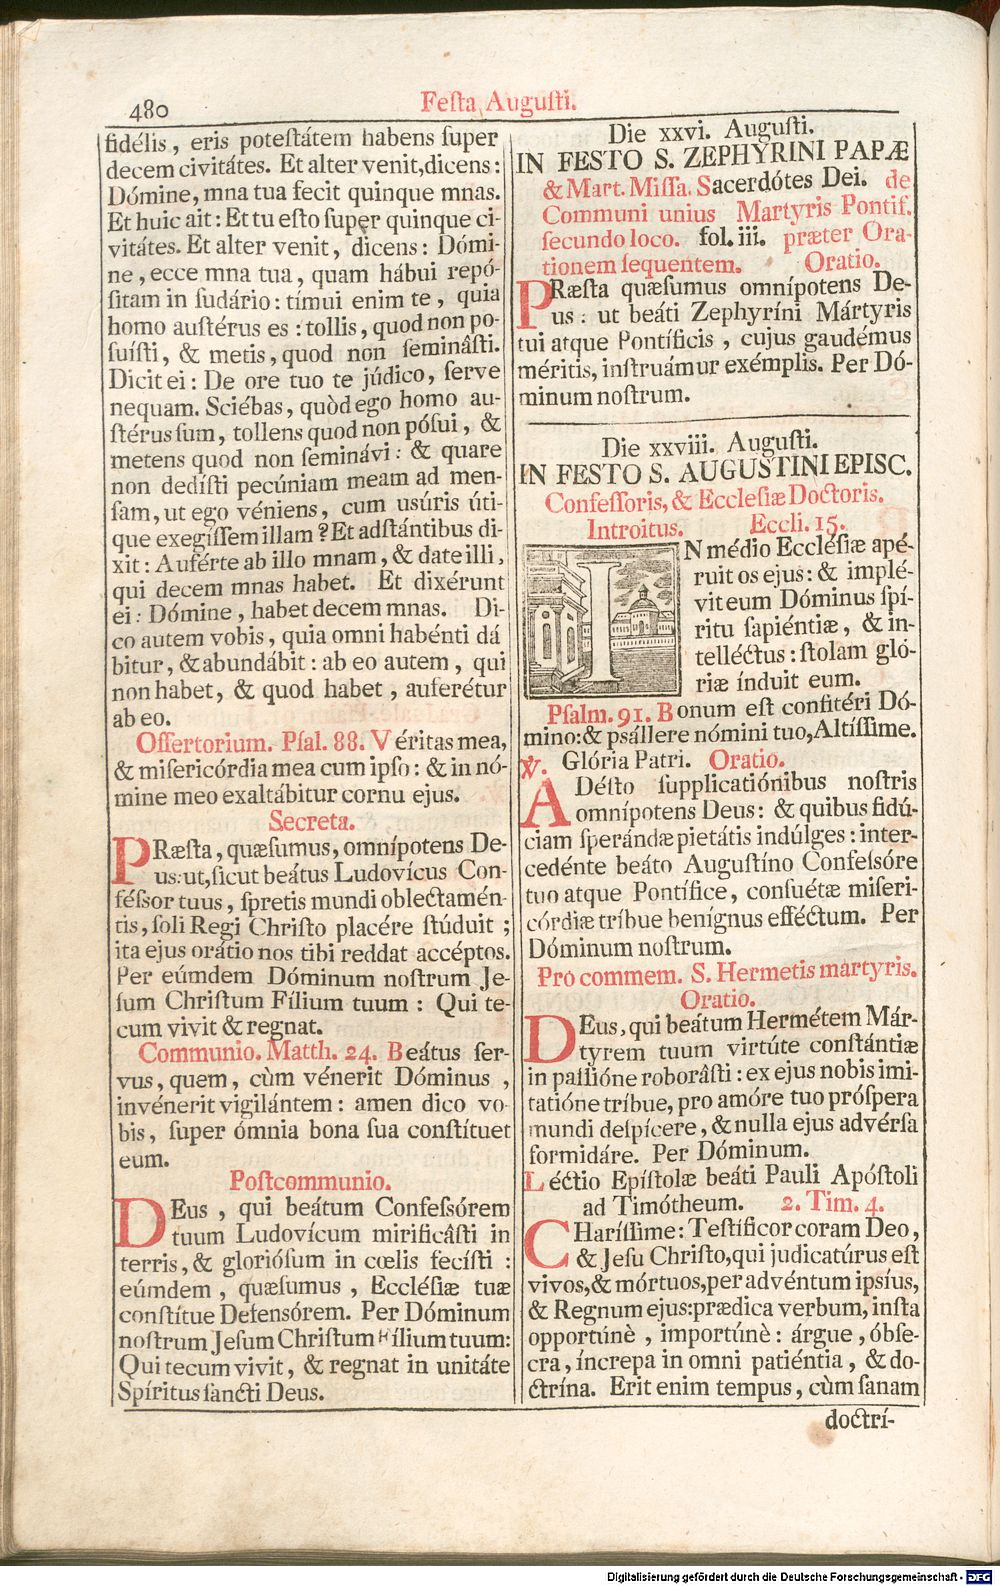 480
Festa Augusti.
fidélis, eris potestátem habens super
decem civitátes. Et alter venit, dicens:
Dómine, mna tua fecit quinque mnas.
Et huic ait: Et tu esto super quinque ci-
vitátes. Et alter venit, dicens: Dómi-
ne, ecce mna tua, quam hábui repó-
sitam in sudário: tímui enim te, quia
homo austérus es: tollis, quod non po-
suísti, & metis, quod non seminâsti.
Dicit ei: De ore tuo te júdico, serve
nequam. Sciébas, quòd ego homo au-
stérus sum, tollens quod non pósui, &
metens quod non seminávi: & quare
non dedísti pecúniam meam ad men-
sam, ut ego véniens, cum usúris úti-
que exegíssem illam? Et adstántibus di-
xit: Auférte ab illo mnam, & date illi,
qui decem mnas habet. Et dixérunt
ei: Dómine, habet decem mnas. Di-
co autem vobis, quia omni habénti dá
bitur, & abundábit: ab eo autem, qui
non habet, & quod habet, auferétur
ab eo.
Offertorium. Psal. 88. Véritas mea,
& misericórdia mea cum ipso: & in nó-
mine meo exaltábitur cornu ejus.
Secreta.
PRæsta, quæsumus, omnípotens De-
us: ut, sicut beátus Ludovícus Con-
féssor tuus, spretis mundi oblectamén-
tis, soli Regi Christo placére stúduit;
ita ejus orátio nos tibi reddat accéptos.
Per eúmdem Dóminum nostrum Je-
sum Christum Fílium tuum: Qui te-
cum vivit & regnat.
Communio. Matth. 24. Beátus ser-
vus, quem, cùm vénerit Dóminus,
invénerit vigilántem: amen dico vo-
bis, super ómnia bona sua constítuet
eum.
Postcommunio.
DEus, qui beátum Confessórem
tuum Ludovícum mirificâsti in
terris, & gloriósum in cœlis fecísti:
eúmdem, quæsumus, Ecclésiæ tuæ
constítue Defensórem. Per Dóminum
nostrum Jesum Christum Fílium tuum:
Qui tecum vivit, & regnat in unitáte
Spíritus sancti Deus.
Die xxvi. Augusti.
IN FESTO S. ZEPHYRINI PAPÆ
& Mart. Missa. Sacerdótes Dei. de
Communi unius Martyris Pontif.
secundo loco. fol. iii. præter Ora-
tionem sequentem. Oratio.
PRæsta quæsumus omnípotens De-
us: ut beáti Zephyríni Mártyris
tui atque Pontíficis, cujus gaudémus
méritis, instruámur exémplis. Per Dó-
minum nostrum.
Die xxviii. Augusti.
IN FESTO S. AUGUSTINI EPISC.
Confessoris, & Ecclesiæ Doctoris.
Introitus. Eccli. 15.
IN médio Ecclésiæ apé-
ruit os ejus: & implé-
vit eum Dóminus spí-
ritu sapiéntiæ, & in-
telléctus: stolam gló-
riæ índuit eum.
Psalm. 91. Bonum est confitéri Dó-
mino: & psállere nómini tuo, Altíssime.
℣. Glória Patri. Oratio.
ADésto supplicatiónibus nostris
omnípotens Deus: & quibus fidú-
ciam sperándæ pietátis indúlges: inter-
cedénte beáto Augustíno Confessóre
tuo atque Pontífice, consuétæ miseri-
córdiæ tríbue benígnus efféctum. Per
Dóminum nostrum.
Pro commem. S. Hermetis martyris.
Oratio.
DEus, qui beátum Hermétem Már-
tyrem tuum virtúte constántiæ
in passióne roborâsti: ex ejus nobis imi-
tatióne tríbue, pro amóre tuo próspera
mundi despícere, & nulla ejus advérsa
formidáre. Per Dóminum.
Léctio Epístolæ beáti Pauli Apóstoli
ad Timótheum. 2. Tim. 4.
CHaríssime: Testíficor coram Deo,
& Jesu Christo, qui judicatúrus est
vivos, & mórtuos, per advéntum ipsíus,
& Regnum ejus: prædica verbum, insta
opportúnè, importúnè: árgue, óbse-
cra, íncrepa in omni patiéntia, & do-
ctrína. Erit enim tempus, cùm sanam
doctrí-
Digitalisierung gefördert durch die Deutsche Forschungsgemeinschaft - DFG